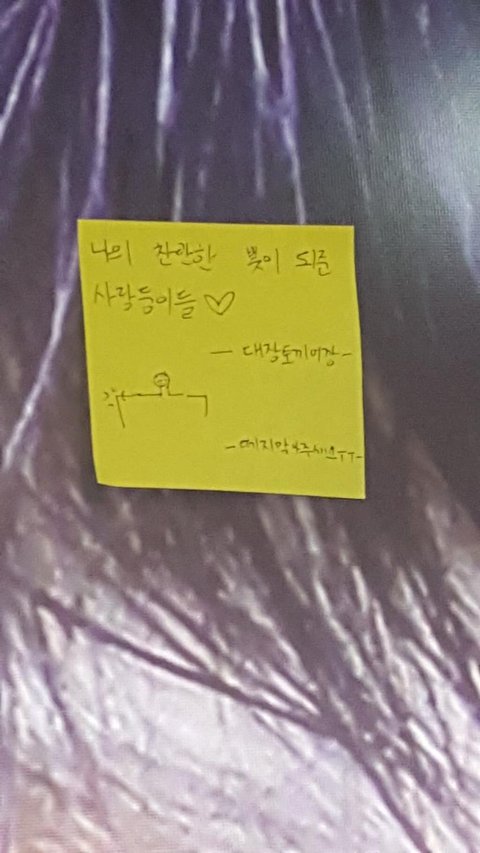 나의 찬란한 빛이 되준
사랑둥이들♡
- 대장토끼이장 -
- 떼지말아주세요ㅜㅜ -